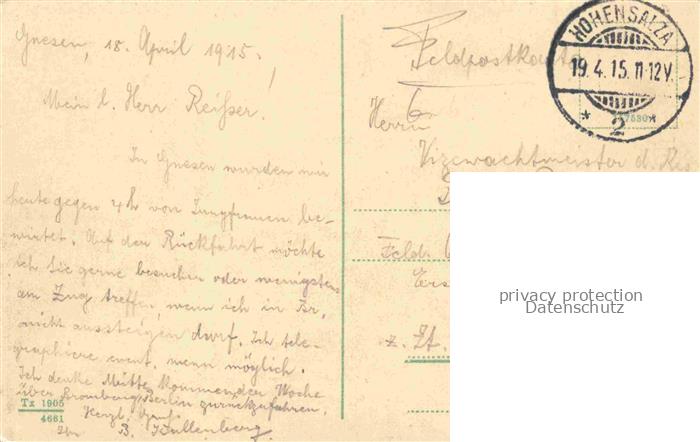 Gnesen, 18. April 1915.
Mein l. Herr Reißer.
In Gnesen wurden wir
heute gegen 4h von Jungfrauen be-
wirtet. Auf der Rückfahrt möchte
ich Sie gerne besuchen oder wenigstens
am Zug treffen, wenn ich in Br.
nicht aussteigen darf. Ich tele-
graphiere event. wenn möglich.
Ich denke Mitte kommender Woche
über Bromberg/Berlin zurückzufahren.
Herzl. Gruß
B. Wallenberg.
Tx 1905
4661
Feldpostkarte
Herrn
Vizewachtmeister d. Res
Feld.
Ers
z. Zt.
HOHENSALZA
19.4.15.11-12V.
* 2 *
privacy protection
Datenschutz